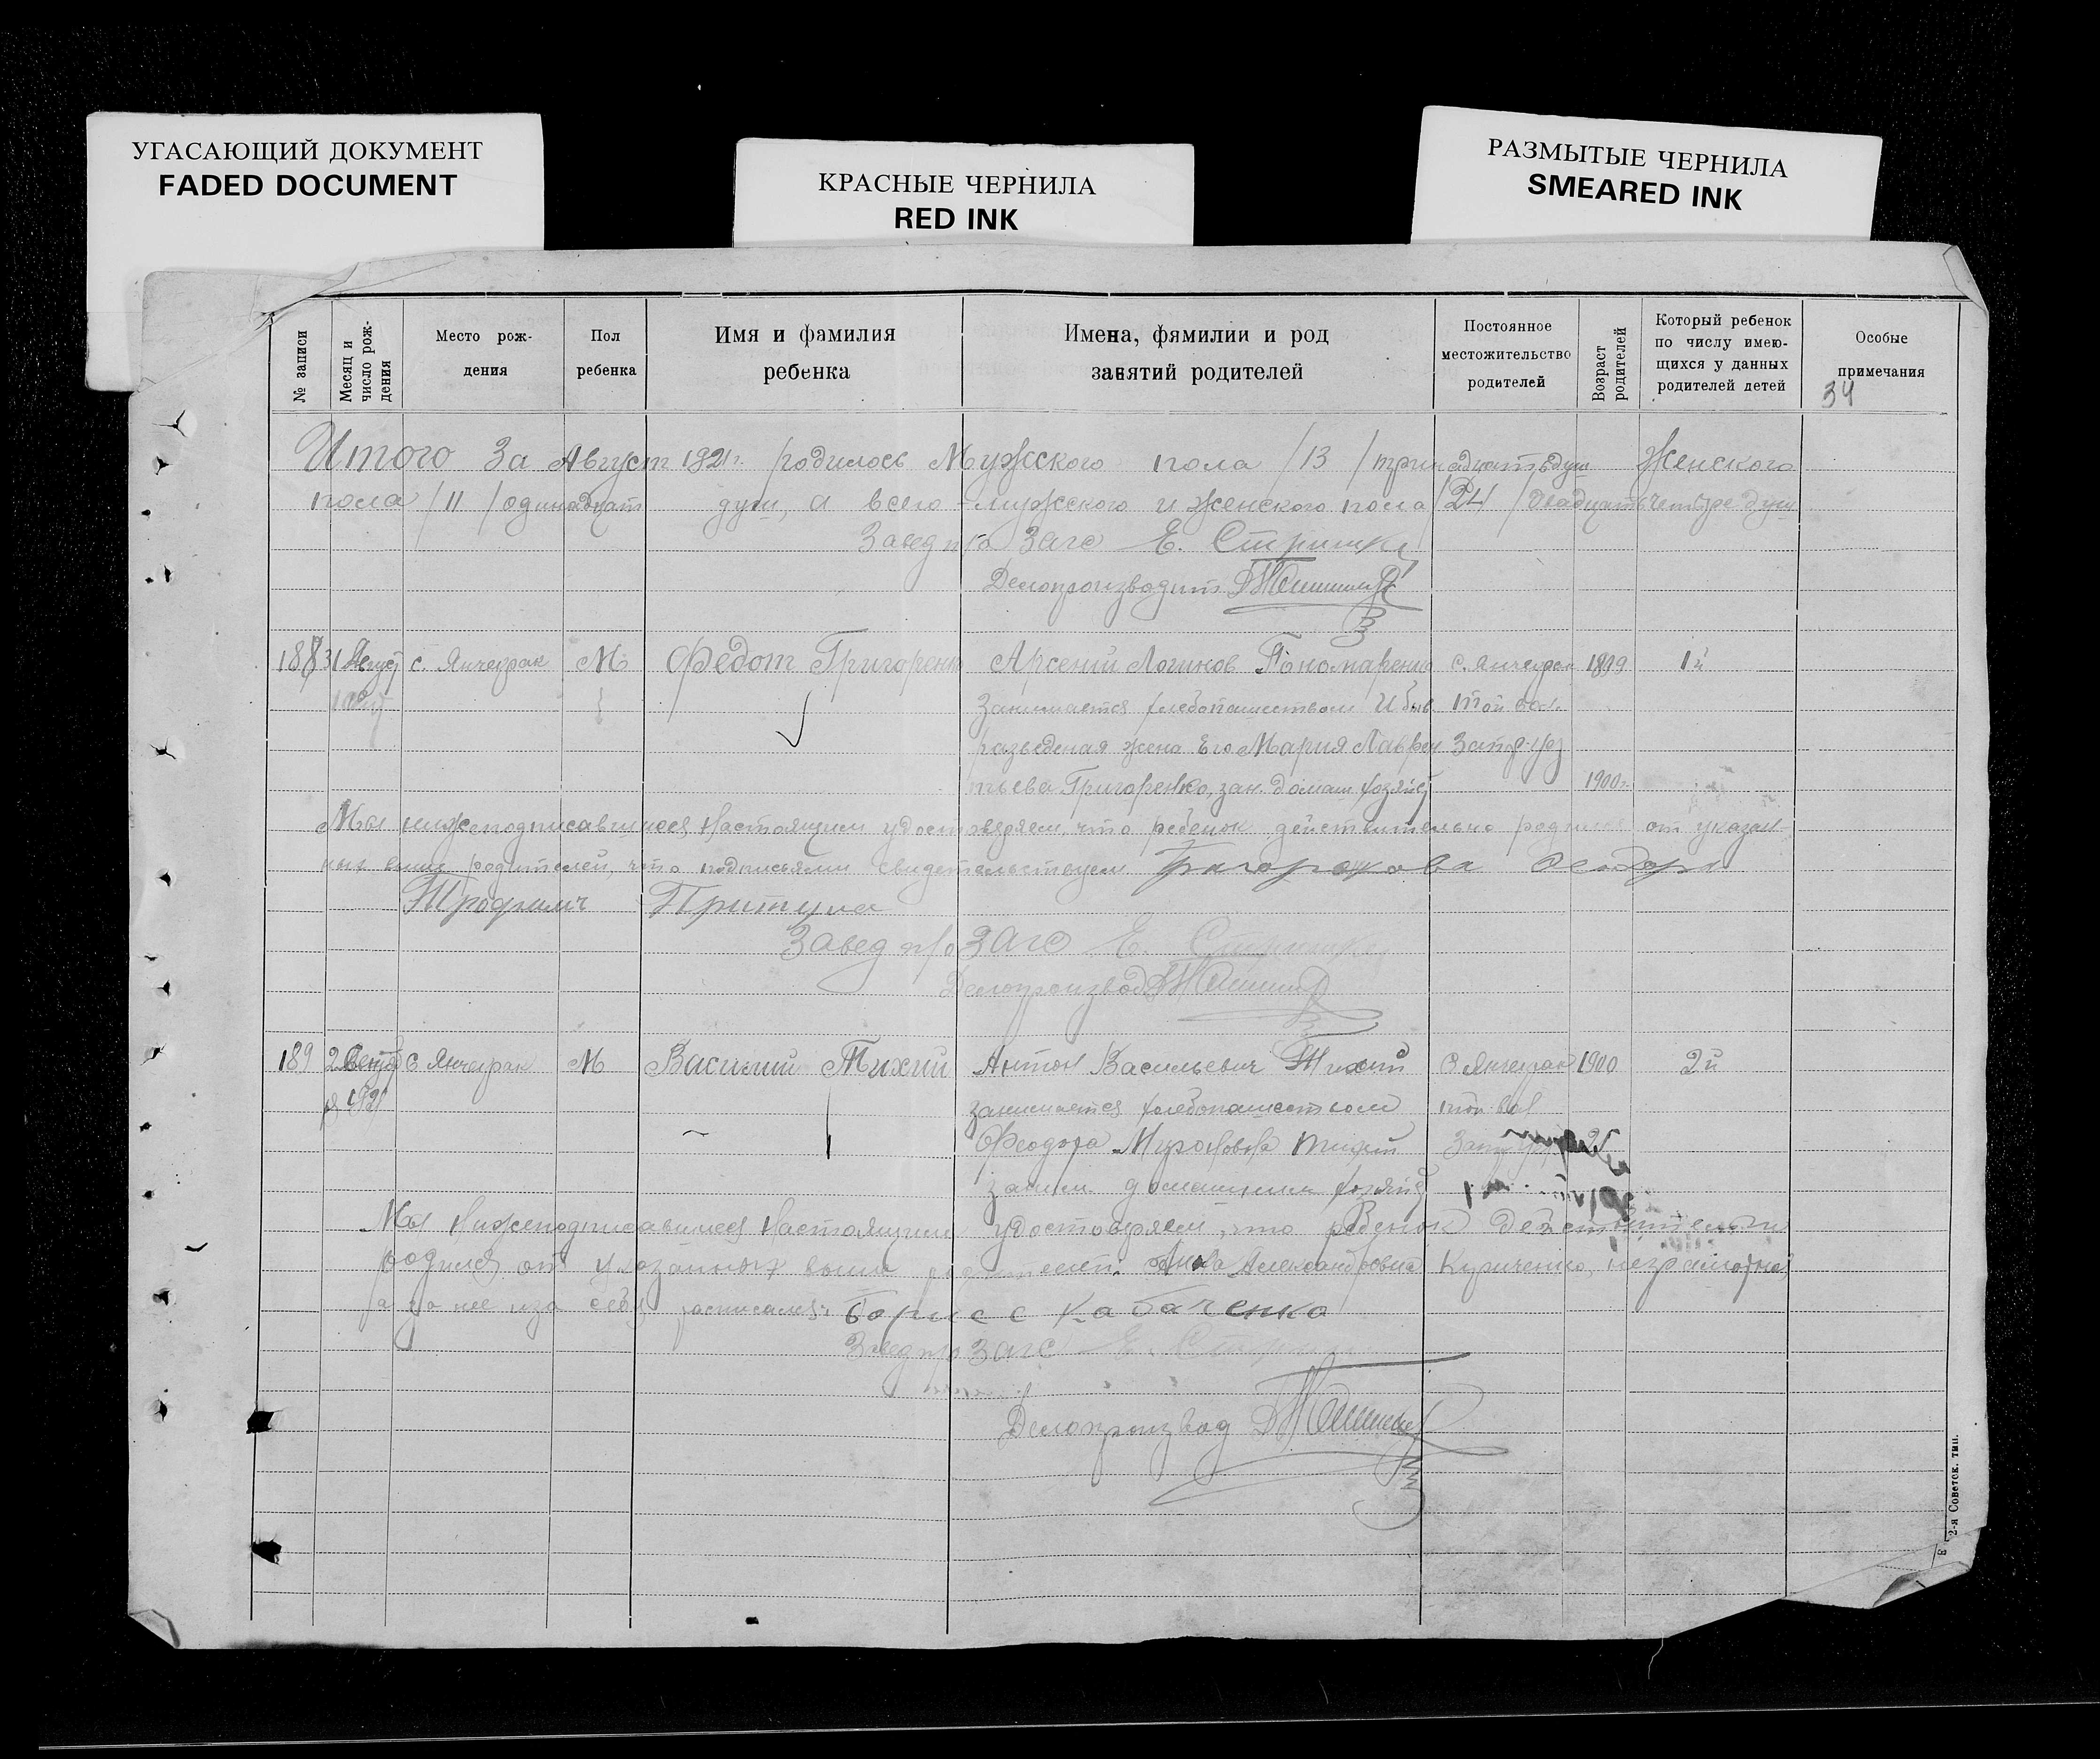 УГАСАЮЩИЙ ДОКУМЕНТ
FADED DOCUMENT
КРАСНЫЕ ЧЕРНИЛА
RED INK
РАЗМЫТЫЕ ЧЕРНИЛА
SMEARED INK
№ записи
Месяц и число рож-дения
Место рож-
дения
Пол
ребенка
Имя и фамилия
ребенка
Имена, фямилии и род
занятий родителей
Постоянное
местожительство
родителей
Возраст родителей
Который ребенок
по числу имею-
щихся у данных
родителей детей
Особые
примечания
34
Итого За Август 1921г. родилось Мужского пола /13/ тринадцать душ Женского
пола /11/ одинадцат душ, а всего - мужского и женского пола /24/ двадцать четыре душ
Завед п/о Загс Е.
Делопроизводит
188 31 Август с. Янчекрак М Федот Григоренко Арсений Логинов Пономаренко с. Янчекрак 1899 1й
занимается хлебопашеством И быв той вол.
разведеная жена Его Мария Лаврен Запор. уез
тьева Григоренко, зан. домаш хозяйс 1900г.
Мы нижеподписавшиеся Настоящим удостоверяем, что ребенок действительно родился от указан-
ных выше родителей, что подписями свидетельствуем
Трофим Притула
Завед п/о Загс Е.
Делопроизвод
189 2 Сентяб с Янчекрак М Василий Тихий Антон Васильевич Тихий с Янчекрак 1900 2й
1921 занимается хлебопашеством той вол
Феодора Мироновна Тихий
заним домашним хозяйс
Мы Нижеподписавшиеся Настоящим удостоверяем, что ребенок действительно
родился от указанных выше родителей: Анна Александровна Кириченко, неграмотна,
а за нее и за себя расписался: Борис Кабаченко
Завед п/о Загс Е.
Делопроизвод
2-я Советск. тип.